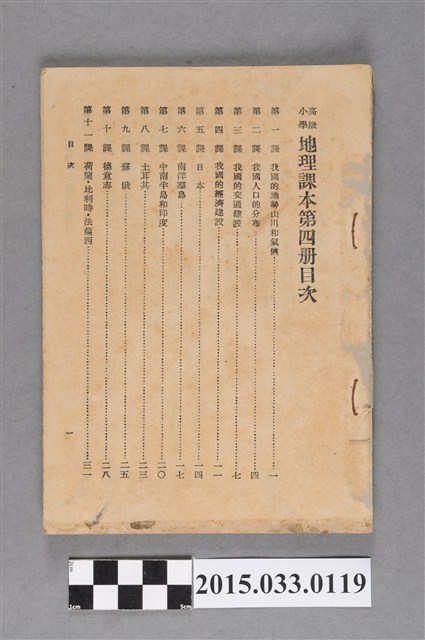 高級小學 地理課本第四册目次
第一課 我國的地勢山川和氣候……一
第二課 我國人口的分布……四
第三課 我國的交通建設……七
第四課 我國的經濟建設……一一
第五課 日本……一四
第六課 南洋羣島……一七
第七課 中南半島和印度……二〇
第八課 土耳其……二三
第九課 蘇俄……二五
第十課 德意志……二八
第十一課 荷蘭·比利時·法蘭西……三一
目次 一
2cm
1cm
5cm
2015.033.0119